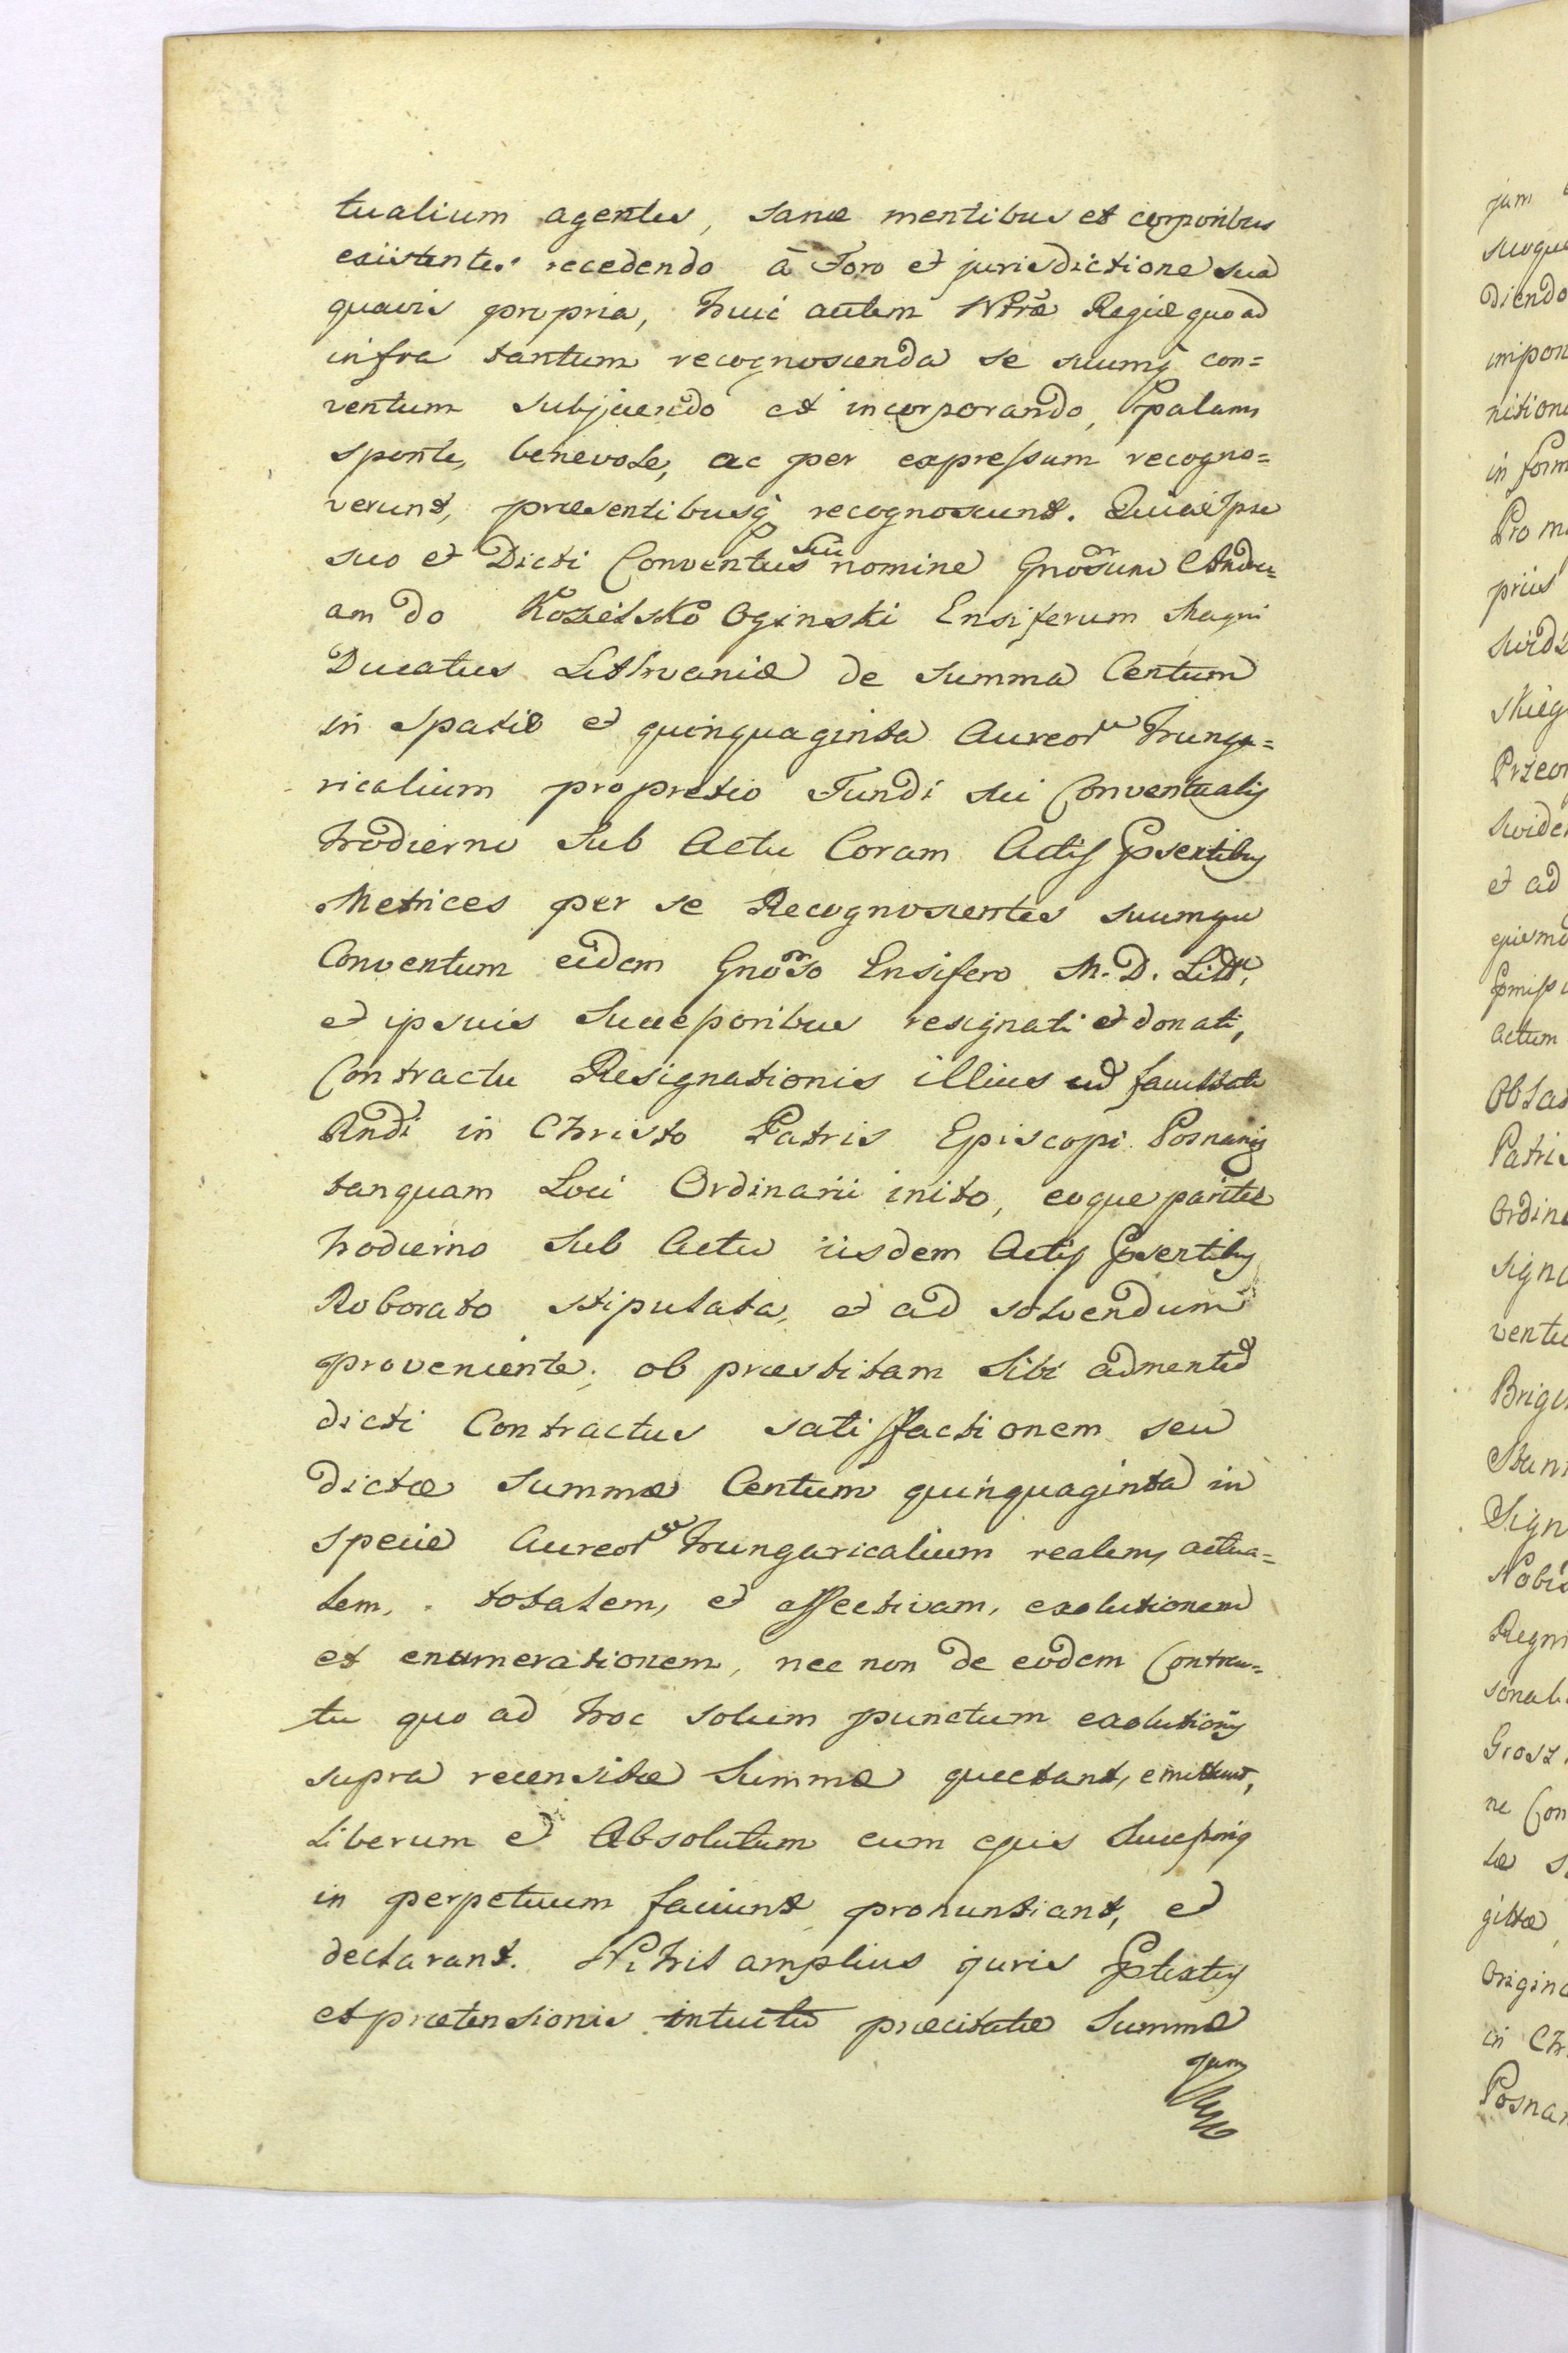 tualium agentes, sanæ mentibus et corporibus
existentes recedendo à Foro et jurisdictione sua
quavis propria, huic autem Nrae Regiæ quoad
infra tantum recognoscenda se suumq con=
ventum subjiciendo et incorporando, palam
sponte, benevole, ac per expressum recogno=
verunt, præsentibusq recognoscunt. Quia ipse
suo et Dicti Conventus sui nomine Gnosum Andre=
am do Kozielsko Oginski Ensiferum Magni
Ducatus Lithvaniæ de summa Centum
in Spatie et quinquaginta Aureor Hunga=
ricalium pro pretio Fundi sui Conventualis
hodierno Sub Actu Coram Actis Psentibus
Metrices per se Recognoscentes suumque
Conventum eidem Gnoso Ensifero M. D. Litt.
et ipsuis Successoribus resignati et donati,
Contractu Resignationis illius ad facultate
Rndi in Christo Patris Episcopi Posnanis
tanquam Loci Ordinarii inito, eoque pariter
hodierno Sub Actu iisdem Actis Psentibus
Roborato stipulata, et ad solvendum
proveniente; ob præstitam Sibi admentem
dicti Contractus satisfactionem seu
dictæ Summæ Centum quinquaginta in
specie Aureor Hungaricalium realem, actua=
lem, totalem, et effectivam, exolutionem
et enumerationem, nec non de eodem Contrac=
tu quo ad hoc solum punctum exolutionis
supra recensitæ Summæ quietant, emittunt,
Liberum et Absolutum cum ejus Successoris
in perpetuum faciunt pronuntiant, et
declarant. Nihil amplius juris Ptestatis
et prætensionis intuitu præcitatæ Summæ
jam
jam
suoque
diendo
impon
nition
in form
Pro m
prius
Przeor
et ad
Actum
Patris
Ordina
signa
ventu
Brigi
Stani
Sign
Nobi
Regni
sonali
Grosz
ne Con
gittæ
Origina
in Ch
Posnan